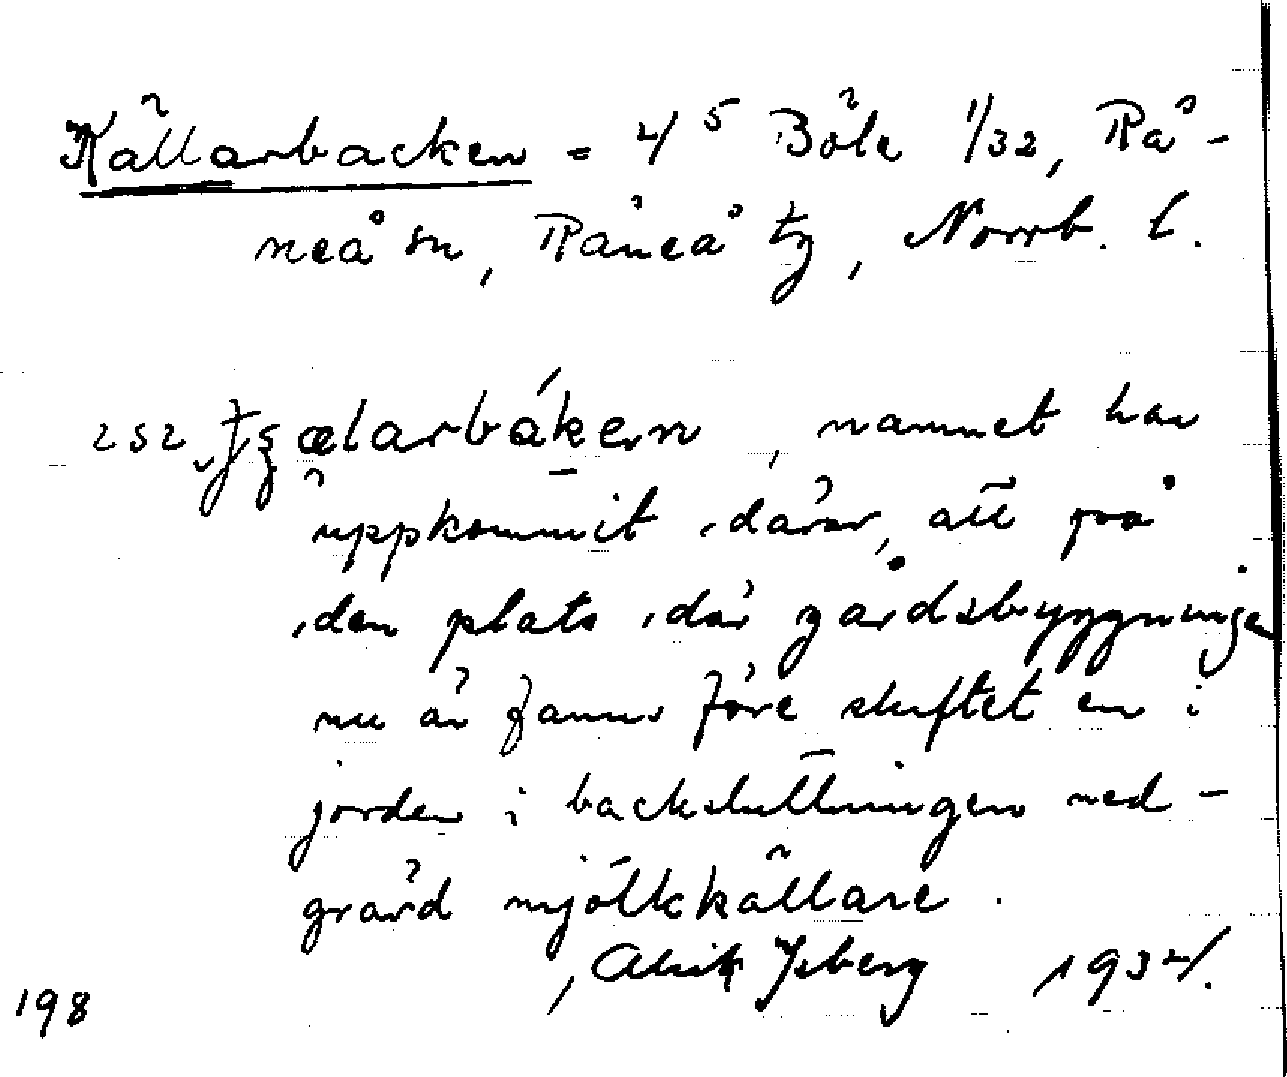 Källarbacken = 4⁵ Böle 1/32, Rå-
neå sn, Råneå tg, Norrb. l.
252 älarbákern, namnet har
uppkommit därav, att på
den plats där gårdsbyggningen
nu är fanns före skiftet en i
jorden i backsluttningen ned-
grävd mjölkkällare.
Alrik Isberg 1932/.
198